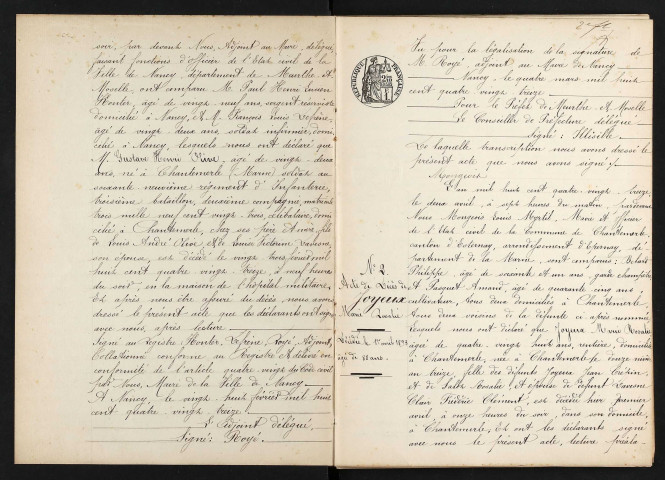 soir, par devant Nous, Adjoint au Maire, délégué,
faisant fonctions d'officier de l'Etat civil de la
Ville de Nancy, département de Meurthe et
Moselle, ont comparu M. Paul Henri Lucien
âgé de vingt neuf ans, sergent
domicilié à Nancy, et M. François Louis Lefrère,
âgé de vingt deux ans, soldat infirmier, domi
cilié à Nancy, lesquels nous ont déclaré que
M. Gustave Henri agé de vingt-deux
ans, né à Chantemerle (Marne) soldat au
soixante neuvième régiment d'Infanterie,
troisième bataillon, deuxième compagnie, matricule
trois mille neuf cent vingt trois, célibataire, domi
cilié à Chantemerle, chez ses père et mère, fils
de Louis André et de Louise
son épouse, est décédé le vingt trois février mil
huit cent quatre vingt treize, à neuf heures
du soir, en la maison de l'hôpital militaire,
Et après nous être assuré du décès, nous avons
dressé le présent acte que les déclarants ont signé
avec nous, après lecture
Signé au registre Lefrère, Royé, Adjoint,
Collationné conforme au Registre et délivré en
conformité de l'article quatre vingt du Code civil
par Nous, Maire de la Ville de Nancy
A Nancy, le vingt huit février mil huit
cent quatre vingt treize
L'Adjoint délégué,
Signé: Royé.
2e
Vu pour la légalisation de la signature de
M. Royé, adjoint au Maire de Nancy
Nancy, le quatre mars mil huit
cent quatre vingt treize
Pour le Préfet de Meurthe et Moselle
Le Conseiller de Préfecture délégué
Signé: Illisible.
De laquelle transcription nous avons dressé le
présent acte que nous avons signé
Mongeois
REPUBLIQUE FRANÇAISE
L'an mil huit cent quatre vingt treize,
le deux août, à sept heures du matin, pardevant
Nous Mongeois Louis Myrtil, Maire et officier
de l'Etat civil de la Commune de Chantemerle,
canton d'Esternay, arrondissement d'Epernay, dé
partement de la Marne, sont comparus:
Philippe, âgé de soixante et un ans, garde champêtre,
et Pasquet Amand, âgé de quarante cinq ans,
cultivateur, tous deux domiciliés à Chantemerle,
tous deux voisins de la défunte ci après nommée,
lesquels nous ont déclaré que Joyeux Marie Rosalie
âgée de quatre vingt huit ans, rentière, domiciliée
à Chantemerle, née à Chantemerle le douze
an treize, fille des défunts Joyeux Jean
et de Salle et épouse de défunt
Clair Frédéric Clément, est décédée hier premier
août, à onze heures du soir, dans son domicile,
à Chantemerle, Et ont les déclarants signé
avec nous le présent acte, lecture préala-
No 2.
Acte de Décès de
Joyeux
Marie Rosalie
Décédée le 1er août 1893
âgée de 88 ans.